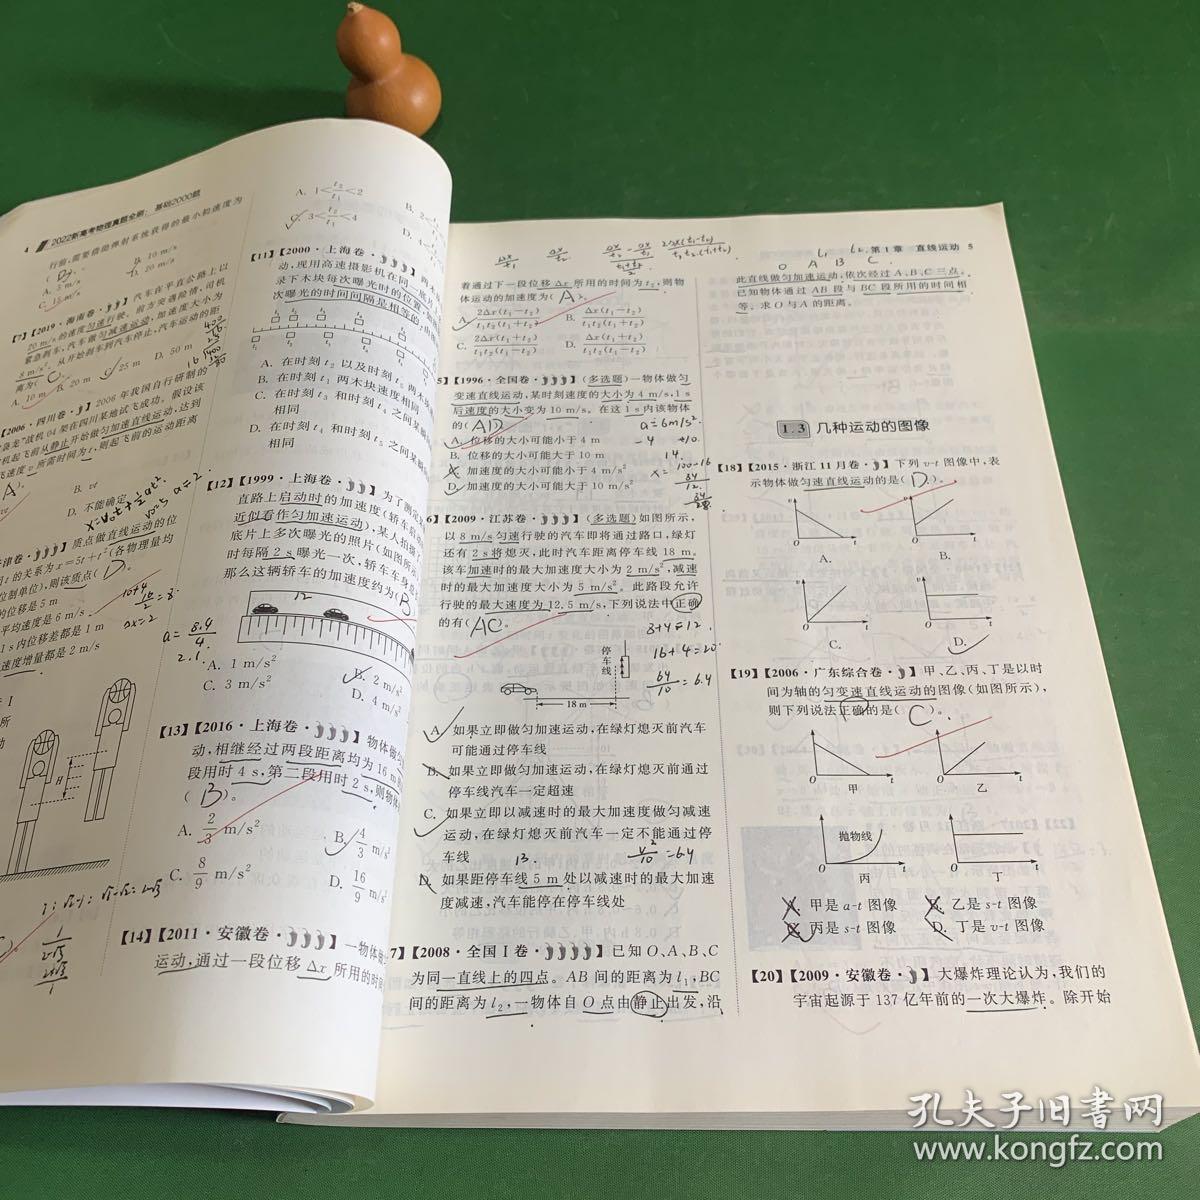 4 2022新高考物理真题全刷：基础2000题
行前,需要借助弹射系统获得的最小初速度为
A. 5 m/s
B. 10 m/s
C. 15 m/s
D. 20 m/s
【2019·海南卷·】汽车在平直公路上以
20 m/s的速度匀速行驶。前方突遇险情,司机
紧急刹车,汽车做匀减速运动,加速度大小为
8 m/s²。从开始刹车到汽车停止,汽车运动的距
离为( C )。
A. 10 m B. 20 m C. 25 m D. 50 m
2006·四川卷·】2006 年我国自行研制的
龙"战机 04 架在四川某地试飞成功。假设该
机起飞前从静止开始做匀加速直线运动,达到
飞速度 v 所需时间为 t,则起飞前的运动距离
B. vt
D. 不能确定
x=V₀t+½at²
津卷·】质点做直线运动的位
t 的关系为 x=5t+t²(各物理量均
位制单位),则该质点( D )。
的位移是 5 m
平均速度是 6 m/s
1 s内位移差都是 1 m
速度增量都是 2 m/s
A. 1<t₂/t₁<2
C. 3<t₂/t₁<4
[11]【2000·上海卷·】
动,现用高速摄影机在同一底片上
录下木块每次曝光时的位置,如
次曝光的时间间隔是相等的,由
A. 在时刻 t₂ 以及时刻 t₅ 两
B. 在时刻 t₁ 两木块速度相同
C. 在时刻 t₃ 和时刻 t₄ 之间某
相同
D. 在时刻 t₄ 和时刻 t₅ 之间某
相同
[12]【1999·上海卷·】为了测定
直路上启动时的加速度(轿车启
近似看作匀加速运动),某人拍摄
底片上多次曝光的照片(如图所
时每隔 2 s曝光一次,轿车车身总
那么这辆轿车的加速度约为( B
12
A. 1 m/s²
B. 2 m/s²
C. 3 m/s²
D. 4 m/s²
[13]【2016·上海卷·】物体做匀
动,相继经过两段距离均为 16 m
段用时 4 s,第二段用时 2 s,则物体
( B )。
A. 2/3 m/s²
B. 4/3 m/s²
C. 8/9 m/s²
D. 16/9 m/s²
[14]【2011·安徽卷·】一物体做
运动,通过一段位移 Δx 所用的时间
第 1 章 直线运动 5
着通过下一段位移 Δx 所用的时间为 t₂,则物
体运动的加速度为( A )。
A. 2Δx(t₁−t₂)/t₁t₂(t₁+t₂)
B. Δx(t₁−t₂)/t₁t₂(t₁+t₂)
C. 2Δx(t₁+t₂)/t₁t₂(t₁−t₂)
D. Δx(t₁+t₂)/t₁t₂(t₁−t₂)
5]【1996·全国卷·】(多选题)一物体做匀
变速直线运动,某时刻速度的大小为 4 m/s,1 s
后速度的大小变为 10 m/s。在这 1 s内该物体
的( AD )。
a=6m/s²
A. 位移的大小可能小于 4 m
B. 位移的大小可能大于 10 m
C. 加速度的大小可能小于 4 m/s²
D. 加速度的大小可能大于 10 m/s²
6]【2009·江苏卷·】(多选题)如图所示,
以 8 m/s 匀速行驶的汽车即将通过路口,绿灯
还有 2 s将熄灭,此时汽车距离停车线 18 m。
该车加速时的最大加速度大小为 2 m/s²,减速
时的最大加速度大小为 5 m/s²。此路段允许
行驶的最大速度为 12.5 m/s,下列说法中正确
的有( AC )。
8+4=12.
16+4=20
64/10=6.4
停车线
18 m
A. 如果立即做匀加速运动,在绿灯熄灭前汽车
可能通过停车线
B. 如果立即做匀加速运动,在绿灯熄灭前通过
停车线汽车一定超速
C. 如果立即以减速时的最大加速度做匀减速
运动,在绿灯熄灭前汽车一定不能通过停
车线
D. 如果距停车线 5 m 处以减速时的最大加速
度减速,汽车能停在停车线处
7]【2008·全国Ⅰ卷·】已知 O、A、B、C
为同一直线上的四点。AB 间的距离为 l₁,BC
间的距离为 l₂,一物体自 O 点由静止出发,沿
O A B C
此直线做匀加速运动,依次经过 A、B、C 三点。
已知物体通过 AB 段与 BC 段所用的时间相
等。求 O 与 A 的距离。
1.3 几种运动的图像
[18]【2015·浙江 11 月卷·】下列 v-t 图像中,表
示物体做匀速直线运动的是( D )。
A.
B.
C.
D.
[19]【2006·广东综合卷·】甲、乙、丙、丁是以时
间为轴的匀变速直线运动的图像(如图所示),
则下列说法正确的是( C )。
甲
乙
抛物线
丙
丁
A. 甲是 a-t 图像
B. 乙是 s-t 图像
C. 丙是 s-t 图像
D. 丁是 v-t 图像
[20]【2009·安徽卷·】大爆炸理论认为,我们的
宇宙起源于 137 亿年前的一次大爆炸。除开始
孔夫子旧书网
www.kongfz.com